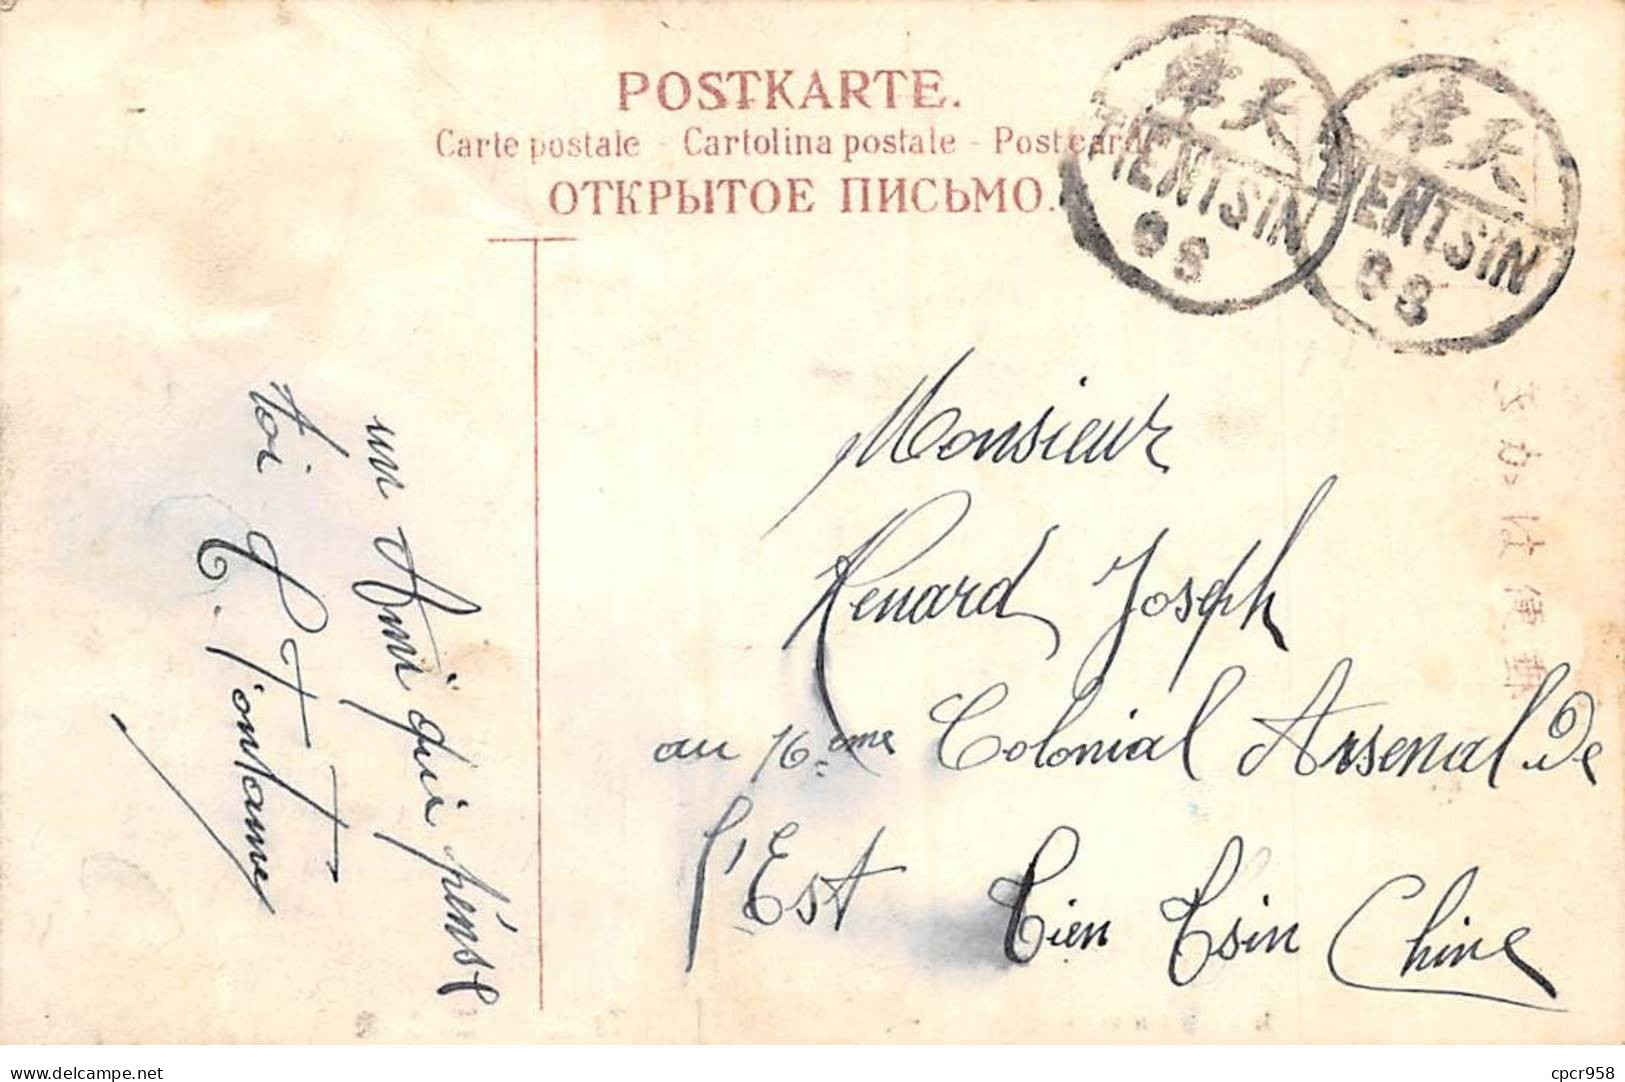 POSTKARTE.
Carte postale - Cartolina postale - Postcard
ОТКРЫТОЕ ПИСЬМО.
津天
TIENTSIN
津天
TIENTSIN
Monsieur
Renard Joseph
au 16.eme Colonial Arsenal de
l'Est Tien Tsin Chine
un Ami qui pense
toi
delcampe.net
cpcr958